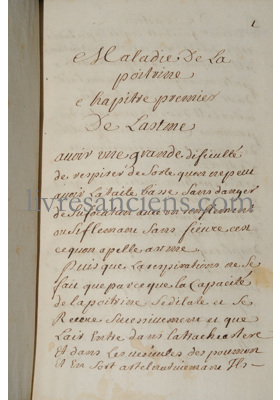 1
Maladie De La
poitrine
Chapitre premier
De Lasme
avoir une grande dificulté
de respirer de sorte quon ne peut
avoir La taite basse Sans danger
de sufocation avec un ronflement
ou siflemant Sans fieure cest
ce quon apelle asme
Puis que La respirations ne se
fait que par ce que La Capacité
de La poitrine se dilate et se
Resere Sucessiuement et que
Lair Entre dans La trachée artere
Et dans Les uesicules des poumon
et En Sort alternatiuemant Ils
livresanciens.com